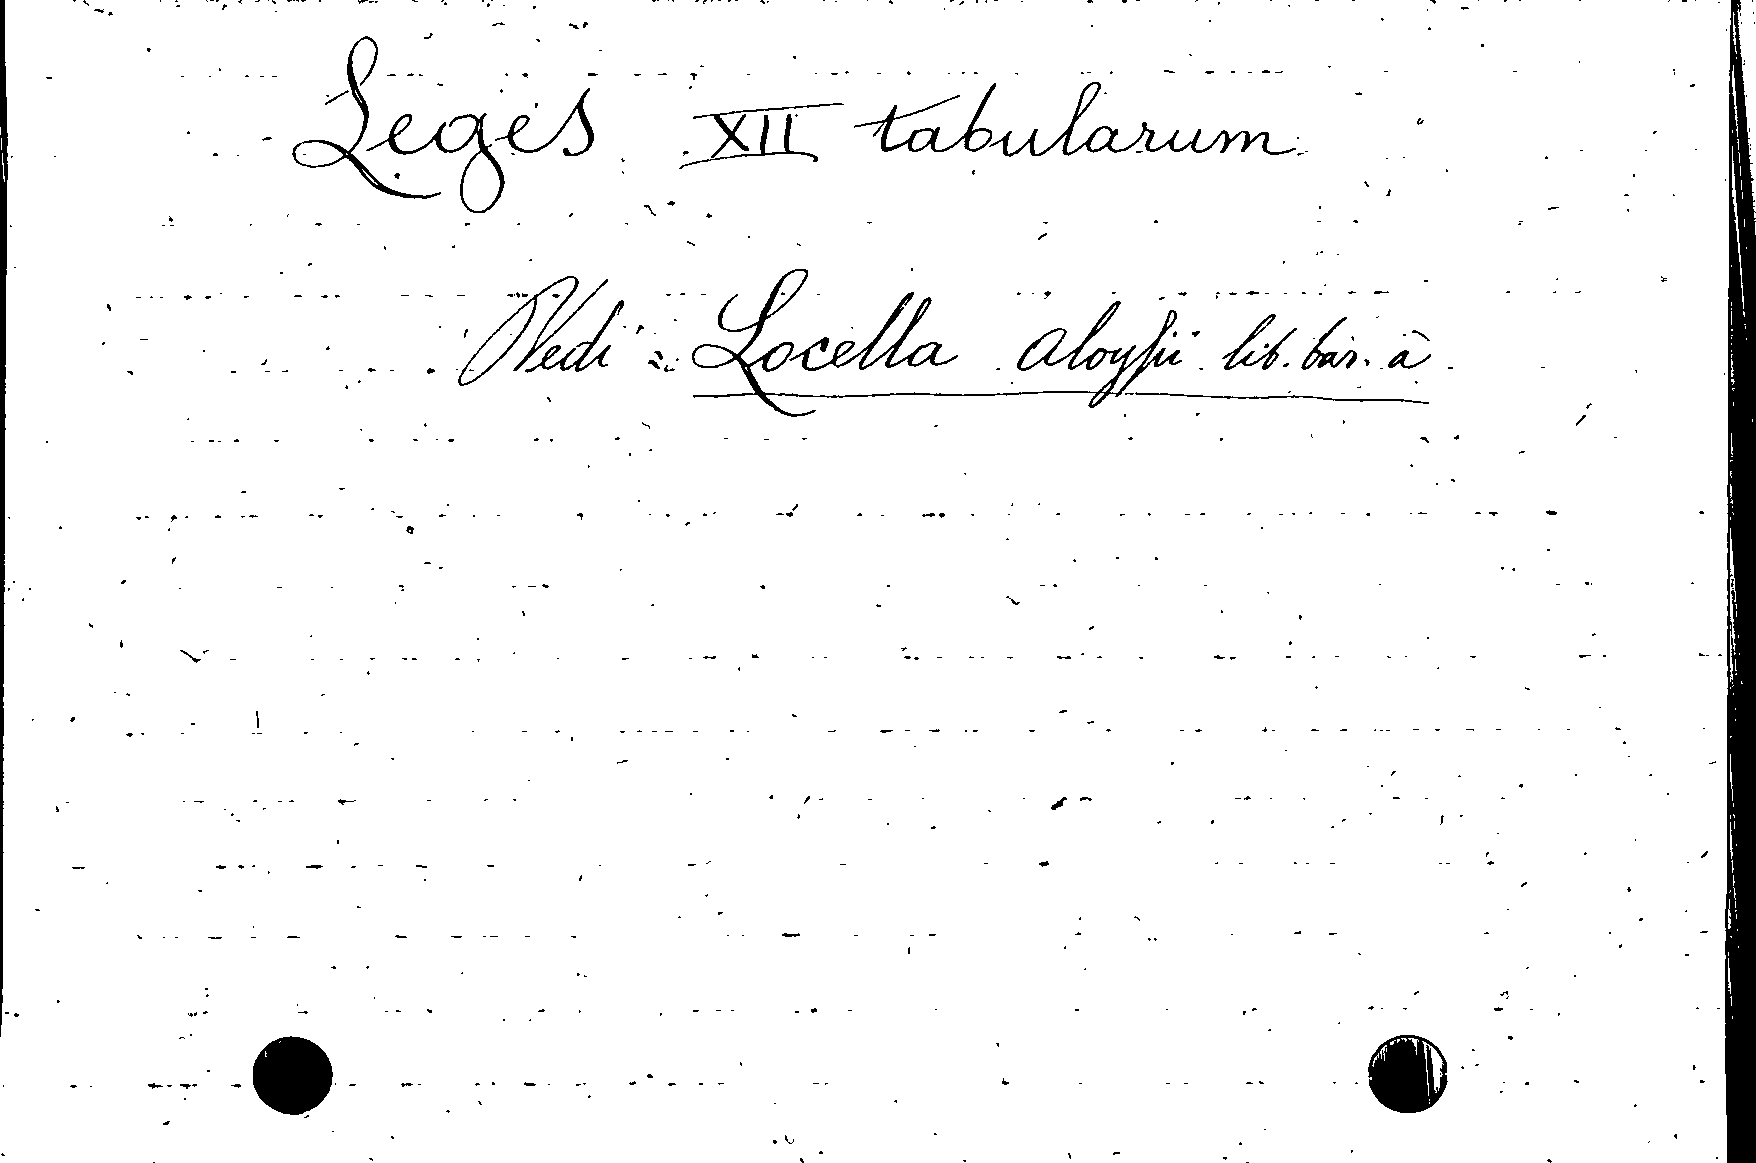 Leges XII tabularum
Vedi = Locella Aloysii lib. bar. à